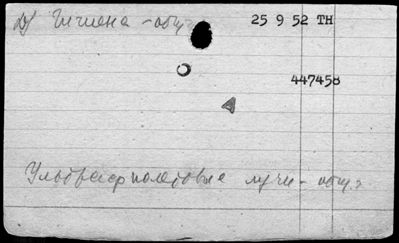 д/ Гигиена - общ.
25 9 52 TH
447458
Ультрафиолетовые лучи - общ.